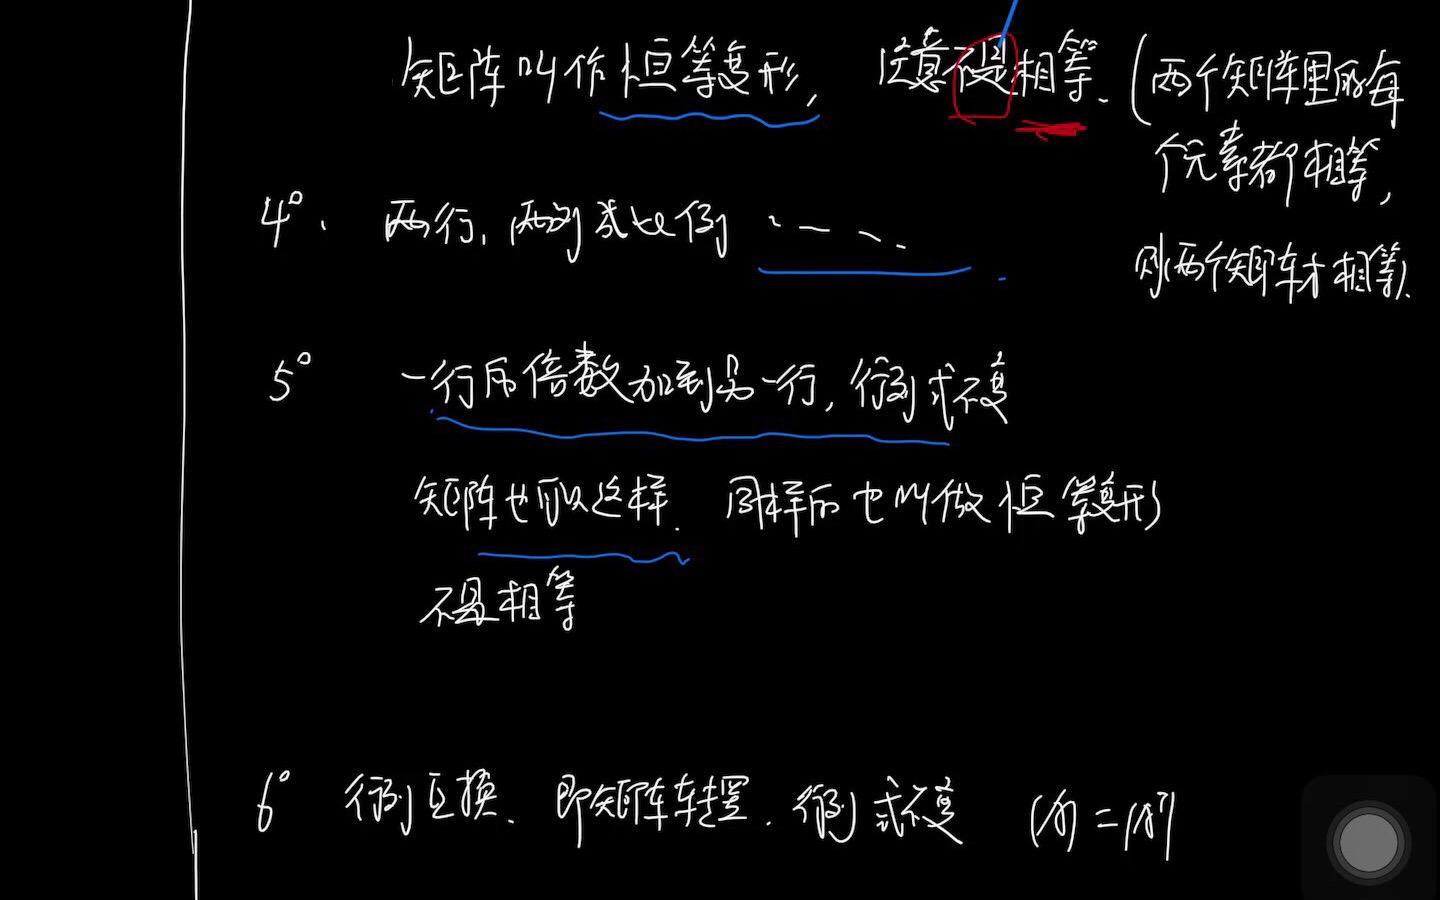 矩阵叫作恒等变形, 注意不是相等. (两个矩阵里的每
个元素都相等,
则两个矩阵才相等).
4°. 两行, 两列成比例 ……
5° 一行的倍数加到另一行, 行列式不变
矩阵也可以这样. 同样的也叫做恒等变形
不是相等
6° 行列互换. 即矩阵转置. 行列式不变 |A| = |Aᵀ|